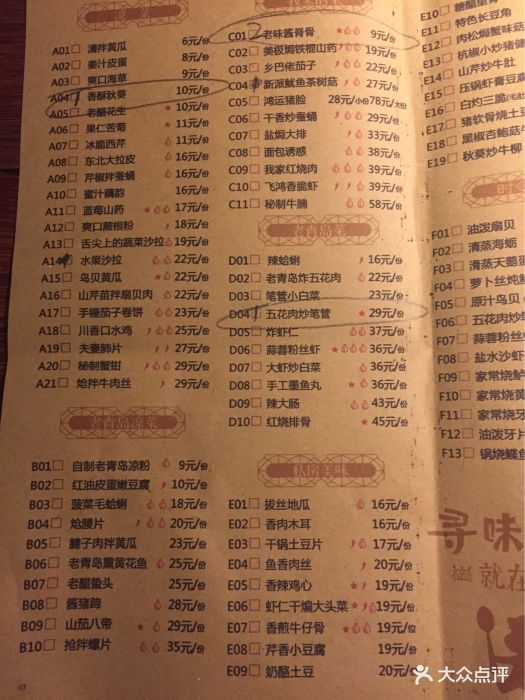 A01 清拌黄瓜 6元/份
A02 姜汁皮蛋 8元/份
A03 爽口海草 9元/份
A04 香酥秋葵 10元/份
A05 老醋花生 10元/份
A06 果仁苦菊 11元/份
A07 冰脆西芹 11元/份
A08 东北大拉皮 16元/份
A09 芹椒拌蚕蛹 16元/份
A10 蜜汁藕韵 16元/份
A11 蓝莓山药 17元/份
A12 爽口蕨根粉 18元/份
A13 舌尖上的蔬菜沙拉 19元/份
A14 水果沙拉 22元/份
A15 鸟贝黄瓜 22元/份
A16 山芹苗拌扇贝肉 22元/份
A17 手锤茄子卷饼 23元/份
A18 川香口水鸡 25元/份
A19 夫妻肺片 27元/份
A20 秘制蟹钳 29元/份
A21 炝拌牛肉丝 29元/份
老青岛凉菜
B01 自制老青岛凉粉 9元/份
B02 红油皮蛋嫩豆腐 10元/份
B03 菠菜毛蛤蜊 18元/份
B04 炝腰片 20元/份
B05 腱子肉拌黄瓜 23元/份
B06 老青岛熏黄花鱼 25元/份
B07 老醋蛰头 25元/份
B08 酱猪蹄 28元/份
B09 山茄八带 29元/份
B10 抢拌螺片 35元/份
07
C01 2 老味酱脊骨 9元/份
C02 美极焗铁棍山药 19元/份
C03 乡巴佬茄子 22元/份
C04 新派鱿鱼茶树菇 27元/份
C05 鸿运猪脸 28元/小份78元/大份
C06 干香炒蚕蛹 29元/份
C07 盐焗大排 33元/份
C08 面包诱惑 38元/份
C09 我家红烧肉 39元/份
C10 飞鸿香脆虾 39元/份
C11 秘制牛腩 58元/份
老青岛菜
D01 辣蛤蜊 16元/份
D02 老青岛炸五花肉 22元/份
D03 笔管小白菜 23元/份
D04 1 五花肉炒笔管 29元/份
D05 炸虾仁 37元/份
D06 蒜蓉粉丝虾 36元/份
D07 大虾炒白菜 36元/份
D08 手工墨鱼丸 36元/份
D09 辣大肠 43元/份
D10 红烧排骨 45元/份
私房美味
E01 拔丝地瓜 16元/份
E02 香肉木耳 16元/份
E03 干锅土豆片 17元/份
E04 鱼香肉丝 20元/份
E05 香辣鸡心 19元/份
E06 虾仁干煸大头菜 19元/份
E07 香煎牛仔骨 19元/位
E08 芹香小豆腐 19元/份
E09 奶酪土豆 20元/份
E10 糖醋里脊
E11 特色长豆角
E12 肉松焗蟹味菇
E13 杭椒小炒猪
E14 山芹炒牛肚
E15 压锅虾膏豆腐
E16 白灼三脆
E17 猪软骨烧土豆
E18 黑椒杏鲍菇
E19 秋葵炒牛柳
F01 油泼扇贝
F02 清蒸海蛎
F03 滑蒸天鹅蛋
F04 萝卜丝炖
F05 原汁鸟贝
F06 五花肉炒
F07 蒜蓉粉丝
F08 盐水沙虾
F09 家常烧鲈
F10 家常烧黄
F11 家常烧牙
F12 油泼牙片
F13 锅烧鲽鱼
寻味
就在
大众点评